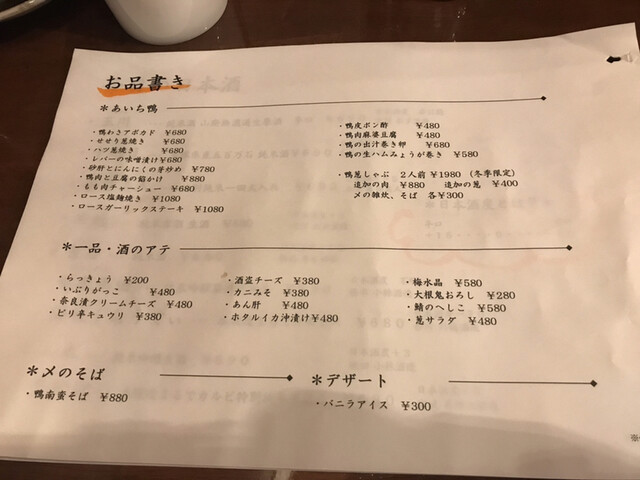 お品書き
＊あいち鴨
・鴨わさアボカド ￥680
・せせり葱焼き ￥680
・ハツ葱焼き ￥680
・レバーの味噌漬け￥680
・砂肝とにんにくの芽炒め ￥780
・鴨肉と豆腐の餡かけ ￥880
・もも肉チャーシュー ￥680
・ロース塩麹焼き ￥1080
・ロースガーリックステーキ ￥1080
・鴨皮ポン酢 ￥480
・鴨肉麻婆豆腐 ￥480
・鴨の出汁巻き卵 ￥680
・鴨の生ハムみょうが巻き ￥580
・鴨葱しゃぶ 2人前￥1980 (冬季限定)
追加の肉 ￥880 追加の葱 ￥400
〆の雑炊、そば 各￥300
＊一品・酒のアテ
・らっきょう ￥200
・いぶりがっこ ￥480
・奈良漬クリームチーズ ￥480
・ピリ辛キュウリ ￥380
・酒盗チーズ ￥380
・カニみそ ￥380
・あん肝 ￥480
・ホタルイカ沖漬け￥480
・梅水晶 ￥580
・大根鬼おろし ￥280
・鯖のへしこ ￥580
・葱サラダ ￥480
＊〆のそば
・鴨南蛮そば ￥880
＊デザート
・バニラアイス ￥300